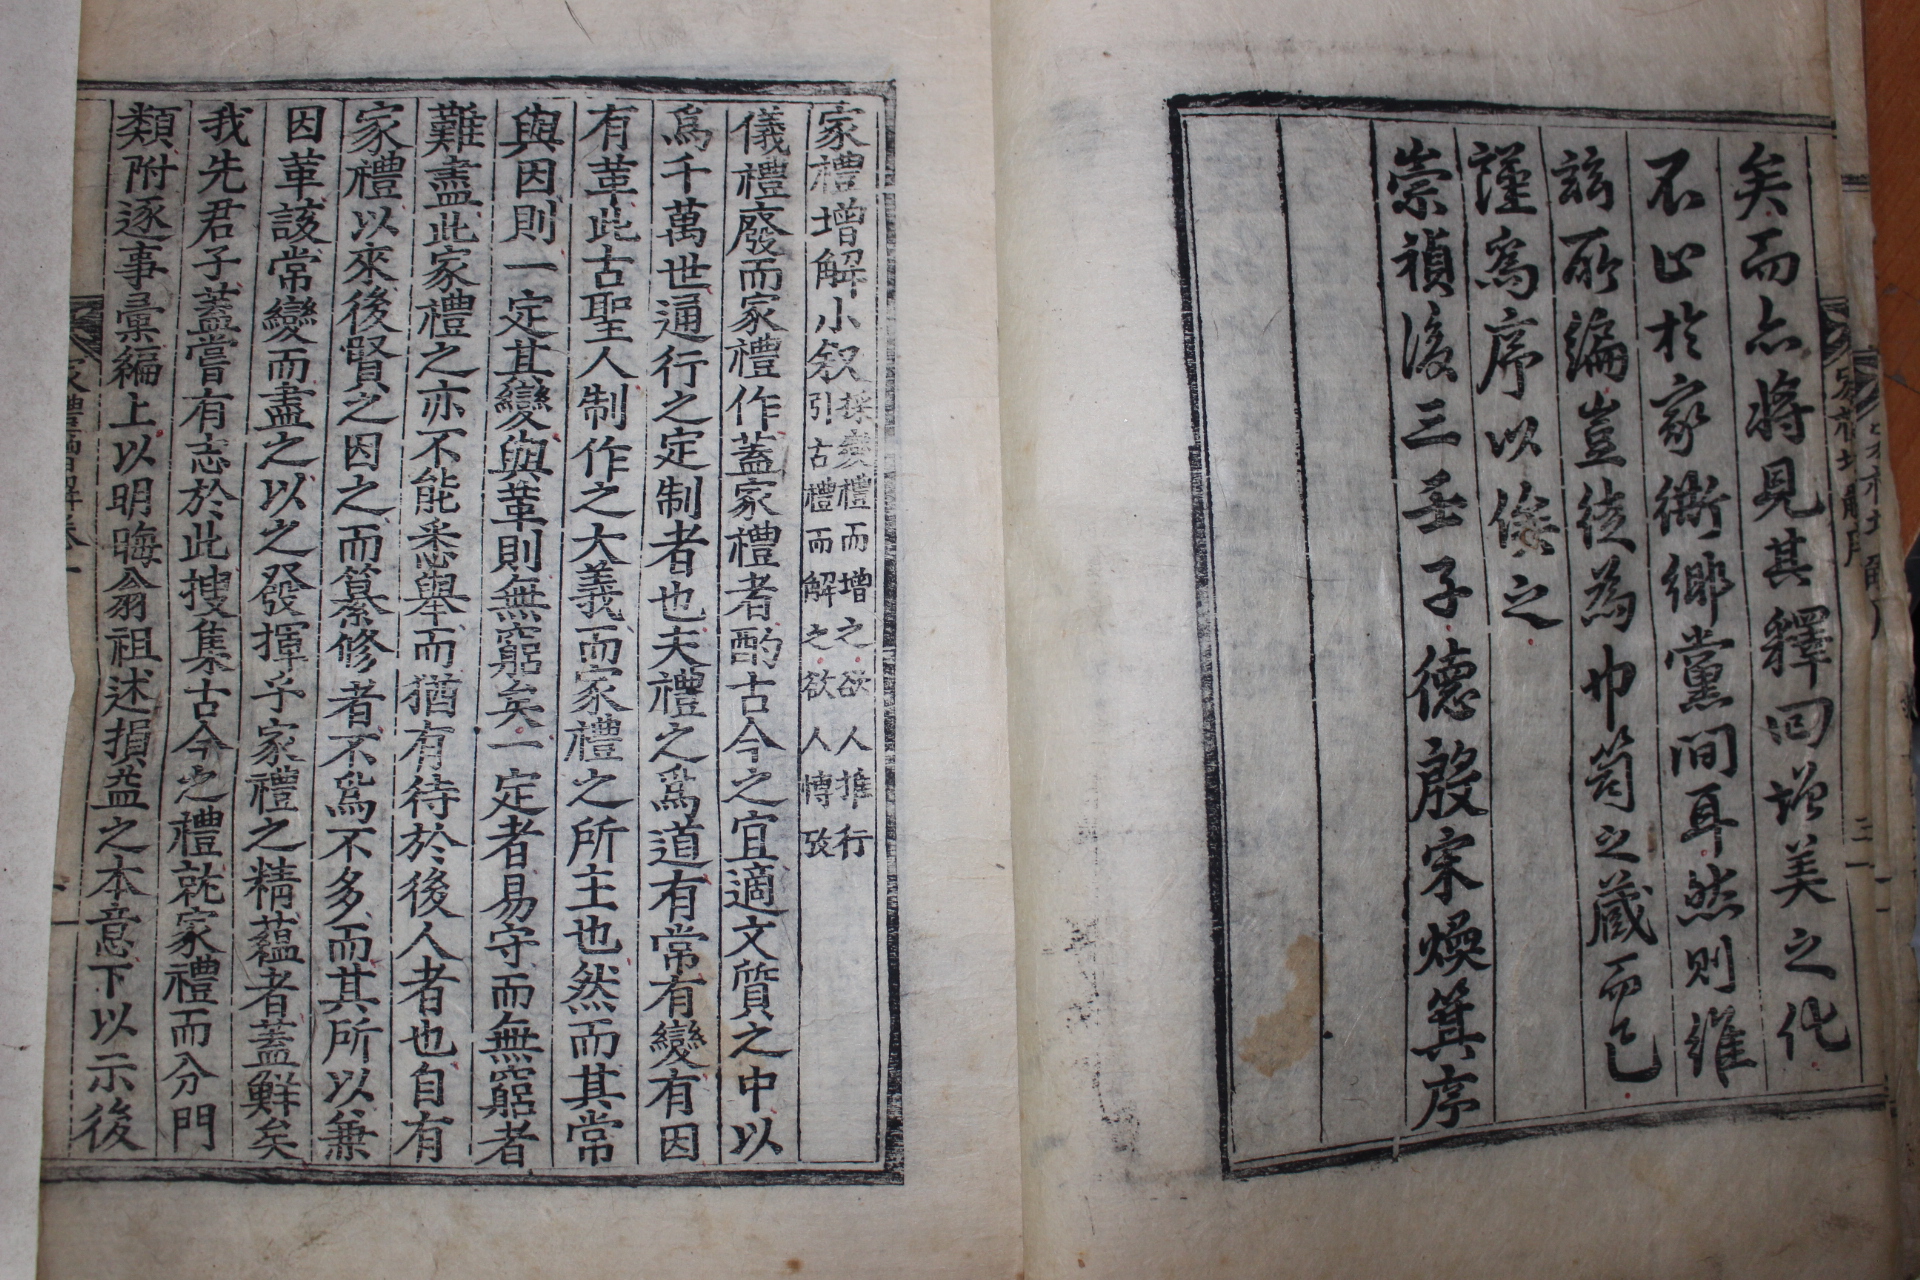 矣而亦將見其釋回增美之化
不止於家衖鄉黨間耳然則維
玆所編豈徒為巾笥之藏而已
謹為序以俟之
崇禎後三壬子德殷宋煥箕序
家禮增解小叙 採變禮而增之欲人推行
引古禮而解之欲人博攷
儀禮廢而家禮作蓋家禮者酌古今之宜適文質之中以
爲千萬世通行之定制者也夫禮之爲道有常有變有因
有革此古聖人制作之大義而家禮之所主也然而其常
與因則一定其變與革則無窮矣一定者易守而無窮者
難盡此家禮之亦不能悉舉而猶有待於後人者也自有
家禮以來後賢之因之而纂修者不爲不多而其所以兼
因革該常變而盡之以之發揮乎家禮之精蘊者蓋鮮矣
我先君子蓋嘗有志於此搜集古今之禮就家禮而分門
類附逐事彙編上以明晦翁祖述損益之本意下以示後
家禮增解卷一